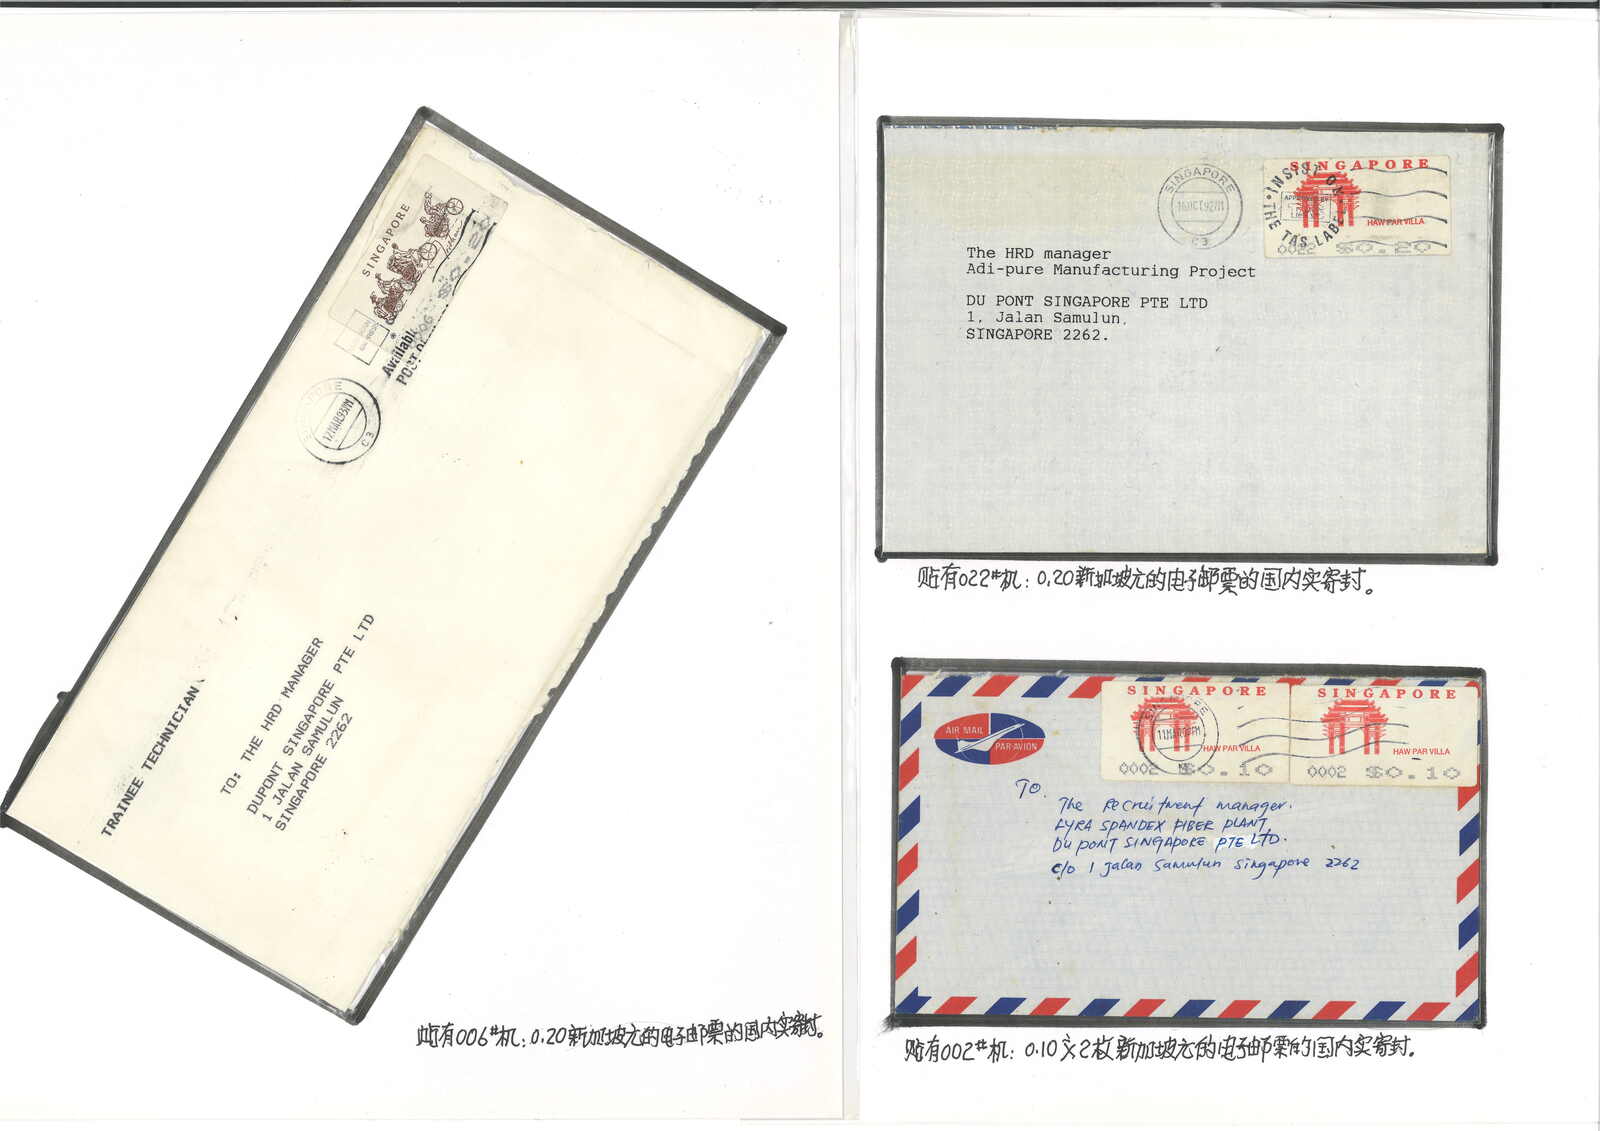 SINGAPORE
Available
POST
SINGAPORE
12MAR93
C3
TRAINEE TECHNICIAN
TO: THE HRD MANAGER
DUPONT SINGAPORE PTE LTD
1 JALAN SAMULUN
SINGAPORE 2262
贴有006#机:0.20新加坡元的电子邮票的国内实寄封。
SINGAPORE
16OCT92
C3
SINGAPORE
INSIST ON
THE TAS LABEL
HAW PAR VILLA
0022 $0.20
The HRD manager
Adi-pure Manufacturing Project
DU PONT SINGAPORE PTE LTD
1, Jalan Samulun,
SINGAPORE 2262.
贴有022#机:0.20新加坡元的电子邮票的国内实寄封。
AIR MAIL
PAR AVION
SINGAPORE
HAW PAR VILLA
0002 $0.10
SINGAPORE
HAW PAR VILLA
0002 $0.10
TO.
The Recruitment manager.
LYRA SPANDEX FIBER PLANT,
DU PONT SINGAPORE PTE LTD.
c/o 1 Jalan Samulun Singapore 2262
贴有002#机:0.10文2枚新加坡元的电子邮票的国内实寄封。